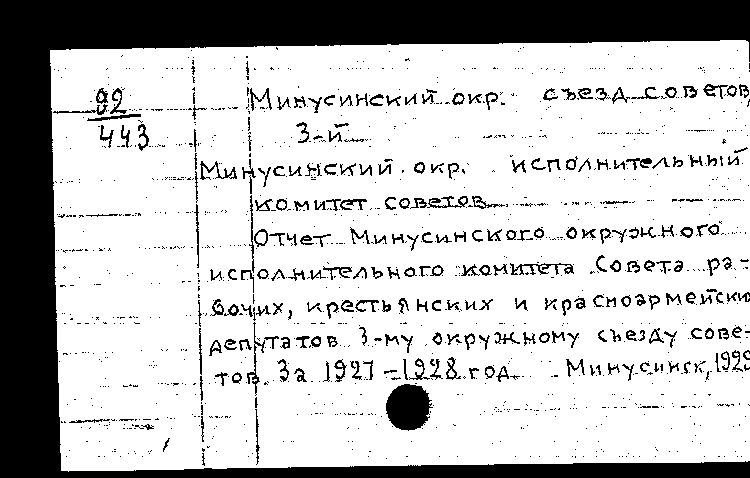 92
443
Минусинский окр. съезд советов,
3-й
Минусинский окр. исполнительный
комитет советов
Отчет Минусинского окружного
исполнительного комитета Совета ра-
бочих, крестьянских и красноармейских
депутатов 3-му окружному съезду сове-
тов. За 1927-1928 год. Минусинск, 1929